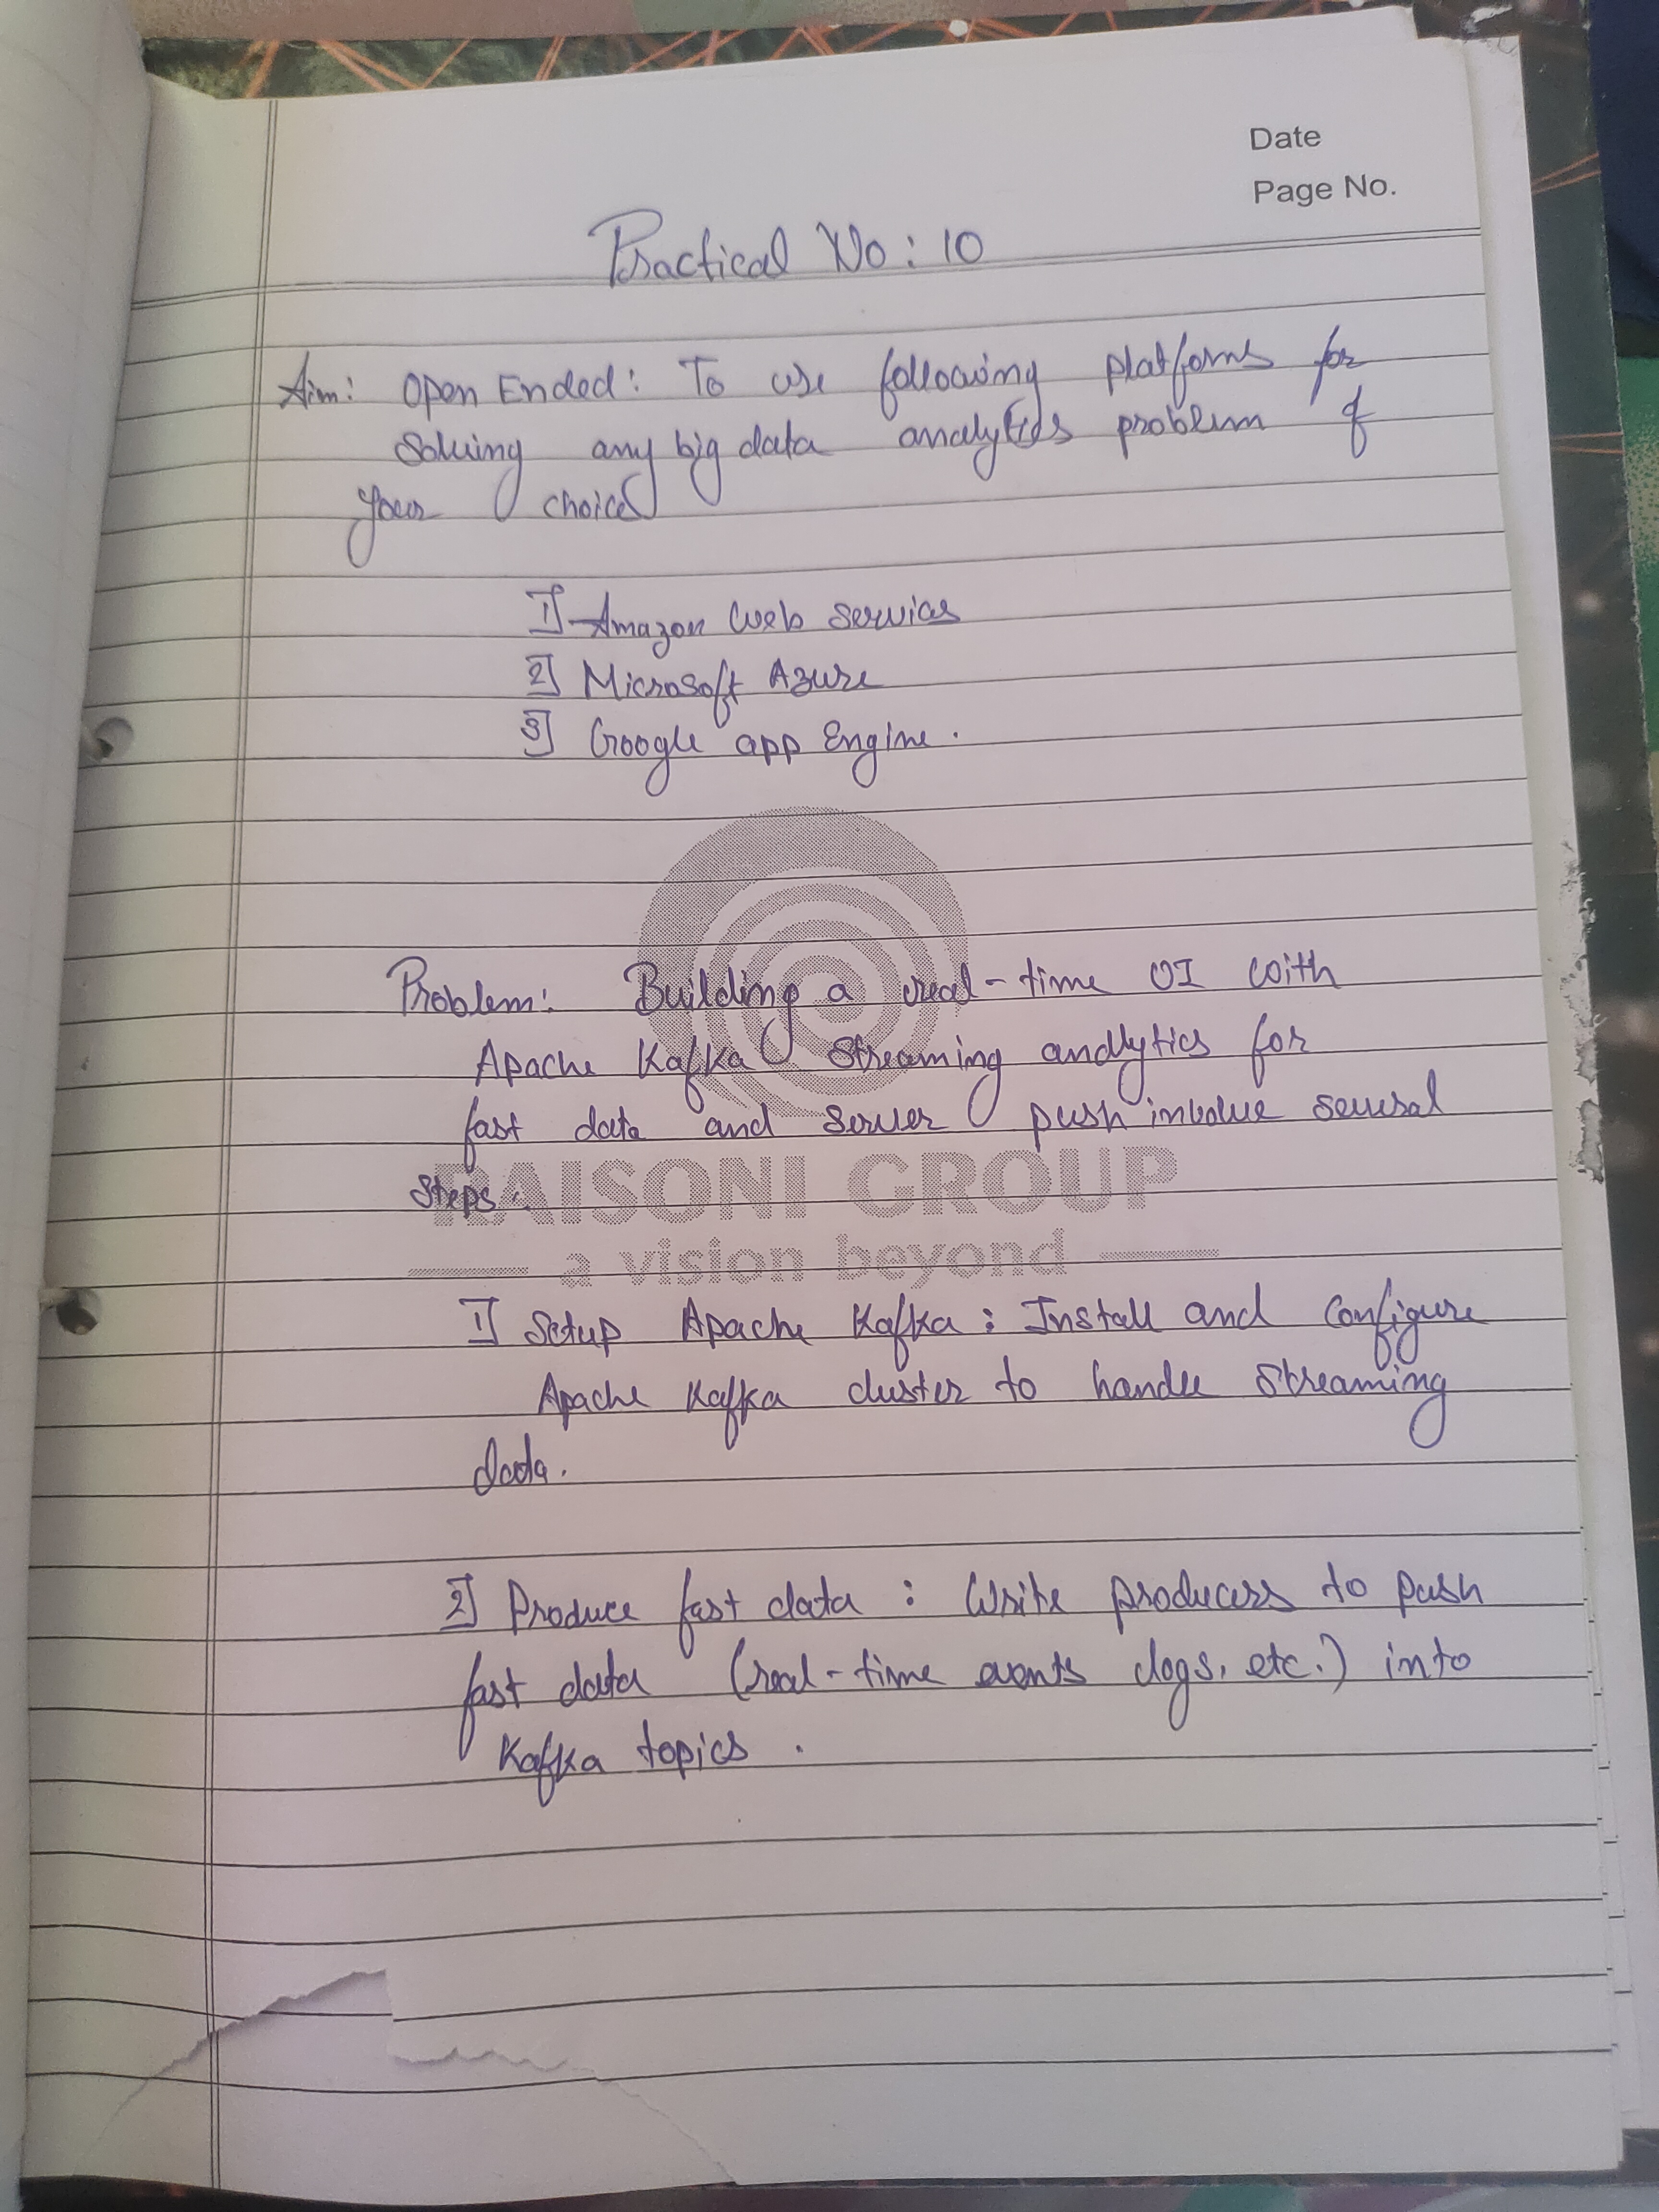 Date
Page No.
Practical No : 10
Aim: Open Ended: To use following platforms for
solving any big data analytics problem of
your choice
1] Amazon Web Services
2] Microsoft Azure
3] Google app Engine.
Problem: Building a real-time UI with
Apache Kafka Streaming analytics for
fast data and server push involve several
steps.
RAISONI GROUP
a vision beyond
1] Setup Apache Kafka : Install and Configure
Apache Kafka cluster to handle streaming
data.
2] Produce fast data : Write producers to push
fast data (real-time events logs, etc.) into
Kafka topics .